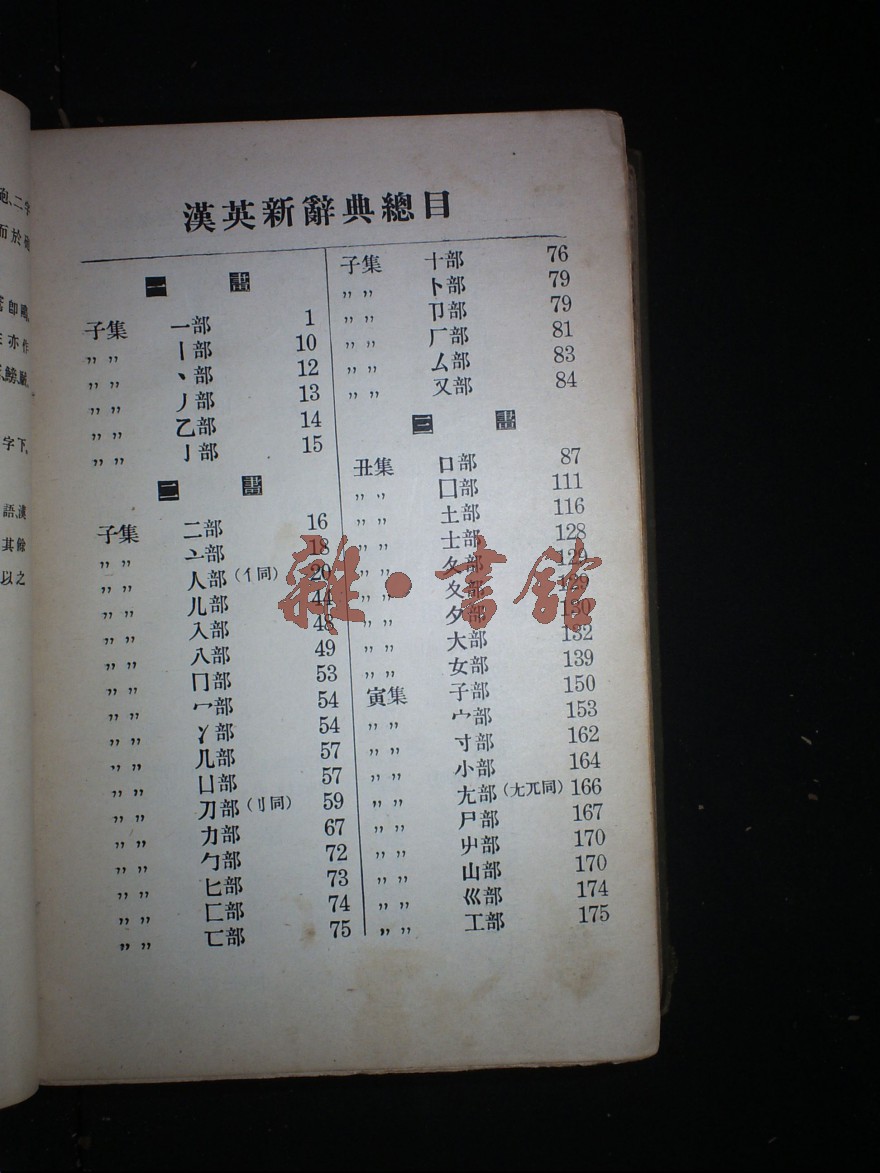 漢英新辭典總目
一 畫
子集 一部 1
〃〃 丨部 10
〃〃 丶部 12
〃〃 丿部 13
〃〃 乙部 14
〃〃 亅部 15
二 畫
子集 二部 16
〃〃 亠部 18
〃〃 人部(亻同) 20
〃〃 儿部 44
〃〃 入部 48
〃〃 八部 49
〃〃 冂部 53
〃〃 冖部 54
〃〃 冫部 54
〃〃 几部 57
〃〃 凵部 57
〃〃 刀部(刂同) 59
〃〃 力部 67
〃〃 勹部 72
〃〃 匕部 73
〃〃 匚部 74
〃〃 匸部 75
子集 十部 76
〃〃 卜部 79
〃〃 卩部 79
〃〃 厂部 81
〃〃 厶部 83
〃〃 又部 84
三 畫
丑集 口部 87
〃〃 囗部 111
〃〃 土部 116
〃〃 士部 128
〃〃 夂部 129
〃〃 夊部 129
〃〃 夕部 130
〃〃 大部 132
〃〃 女部 139
寅集 子部 150
〃〃 宀部 153
〃〃 寸部 162
〃〃 小部 164
〃〃 尢部(尣兀同) 166
〃〃 尸部 167
〃〃 屮部 170
〃〃 山部 170
〃〃 巛部 174
〃〃 工部 175
雜·書館
二字
而於
亦作
字下
語漢
其餘
以之